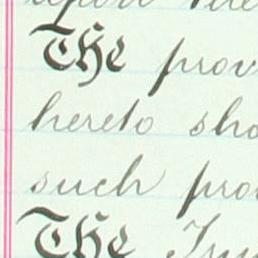 upon
The prov
hereto sho
such prov
The